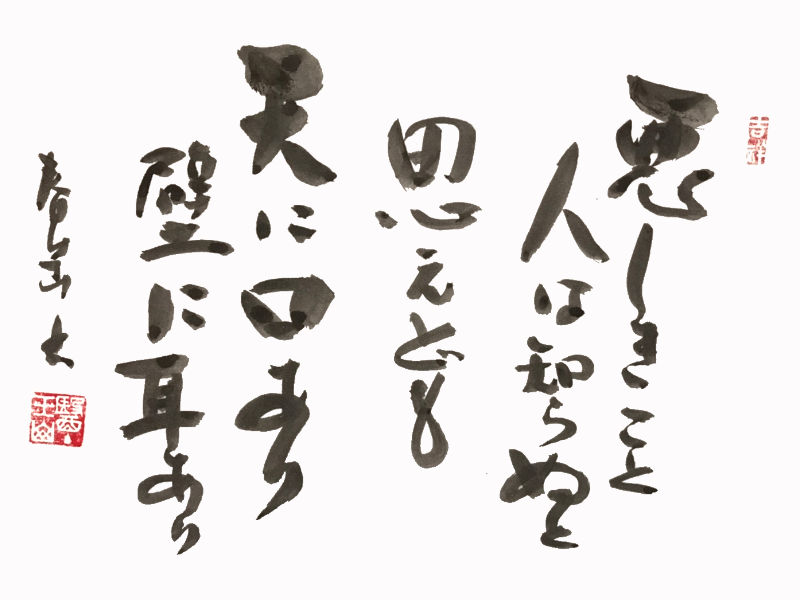 吉祥
悪しきこと
人は知らぬと
思えども
天に口あり
壁に耳あり